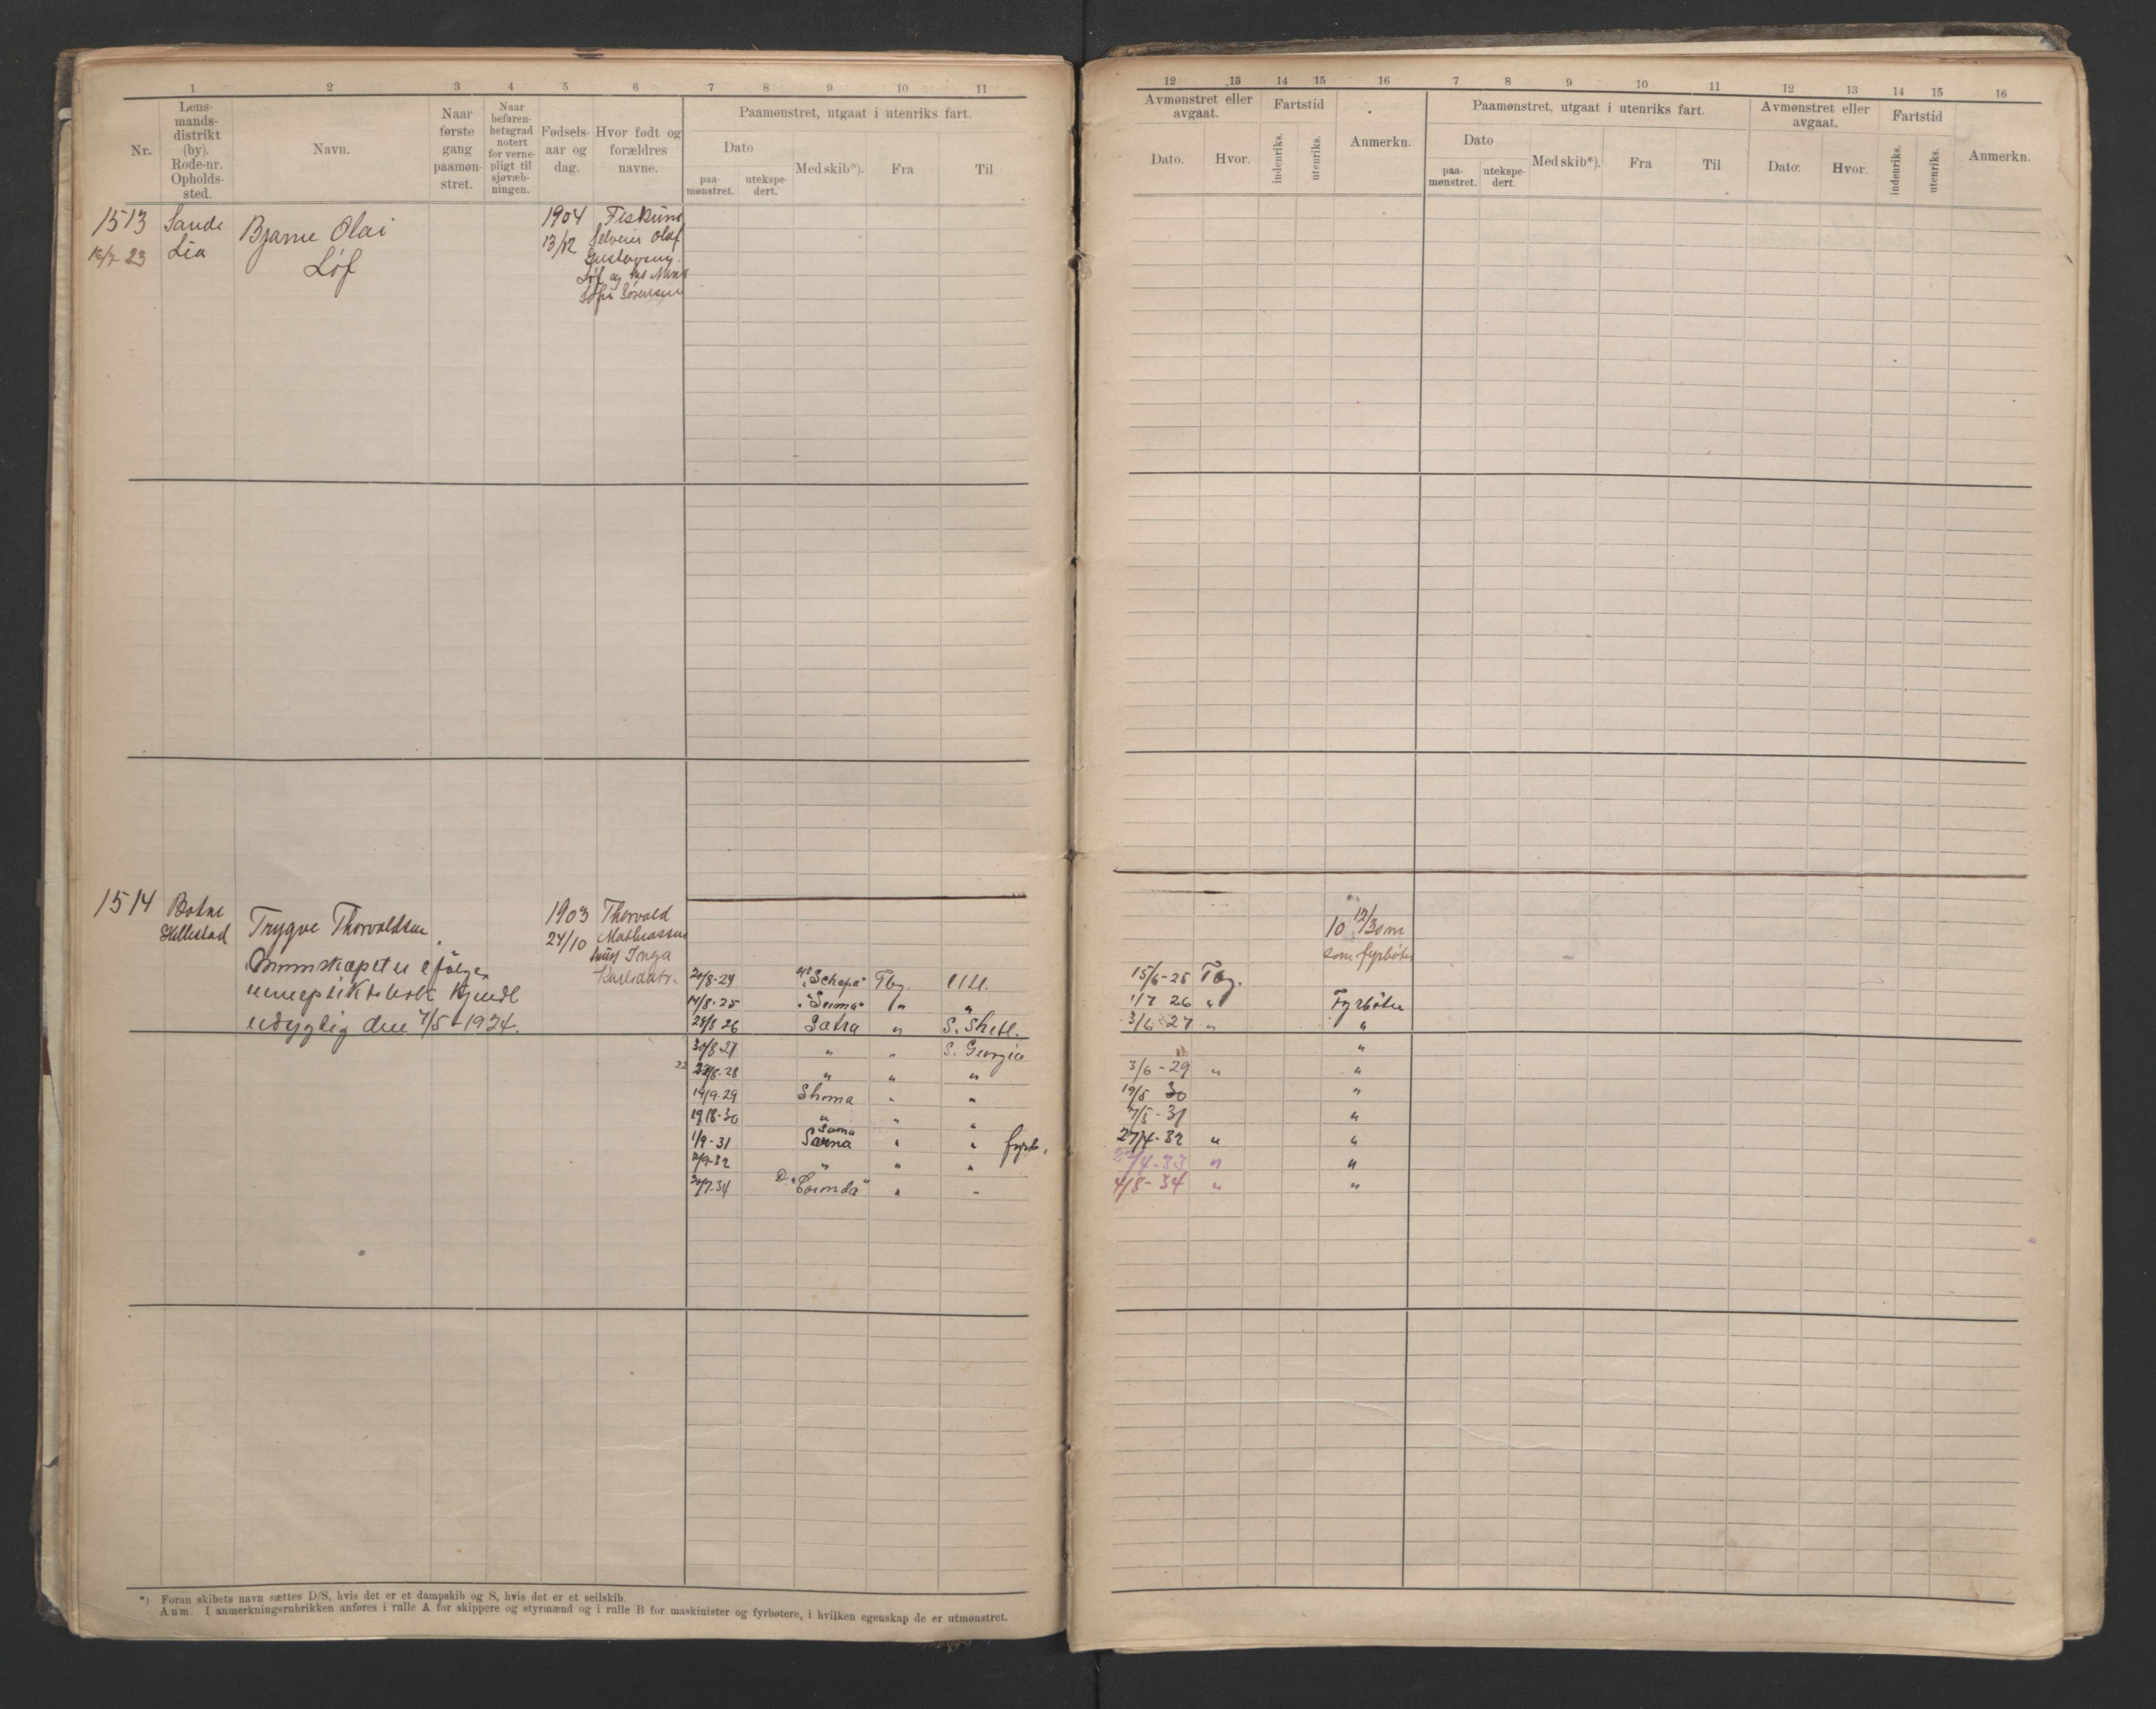 1 2 3 4 5 6 7 8 9 10 11
Nr.
Lens-
mands-
distrikt
(by).
Rode-nr.
Opholds-
sted.
Navn.
Naar
første
gang
paamøn-
stret.
Naar
befaren-
hetsgrad
notert
for verne-
pligt til
sjøvæb-
ningen.
Fødsels-
aar og
dag.
Hvor født og
forældres
navne.
Paamønstret, utgaat i utenriks fart.
Dato
paa-
mønstret.
utekspe-
dert.
Med skib*).
Fra
Til
1513 Sande Bjarne Olai 1904 Fiskum
23 Lia Løf 13/12 Selveier Olaf
Løf og
Sørensen
1514 Botne Trygve Thorvaldsen 1903 Thorvald
Hillestad 24/10 Mathiassen
Inga
kjendt
udygtig den 7/5-1924.
20/8-24 "Schapa" Tbg.
14/8-25 "Seima" " "
28/8 26 Satra " S. Shetl.
30/8-27 " " S. Georgia
22 /8-28 " " "
19/9-29 Shoma " "
19/8-30 " " "
Sama
1/9-31 " " fyrb.
2/9-32 " " "
30/7-34 D. " " -
*) Foran skibets navn sættes D/S, hvis det er et dampskib og S, hvis det er et seilskib.
Anm. I anmerkningsrubrikken anføres i rulle A for skippere og styrmænd og i rulle B for maskinister og fyrbøtere, i hvilken egenskap de er utmønstret.
12 13 14 15 16 7 8 9 10 11 12 13 14 15 16
Avmønstret eller
avgaat.
Dato.
Hvor.
Fartstid
indenriks.
utenriks.
Anmerkn.
Paamønstret, utgaat i utenriks fart.
Dato
paa-
mønstret.
utekspe-
dert.
Med skib*).
Fra
Til
Avmønstret eller
avgaat.
Dato.
Hvor.
Fartstid
indenriks.
utenriks.
Anmerkn.
10 12/30 m
som fyrbøter
15/6-25 Tbg.
1/7 26 " Fyrbøter
3/6 27 " "
"
3/6-29 " "
19/5 30 "
7/5-31 "
27/4-32 " "
/4-33 " "
4/8-34 " "